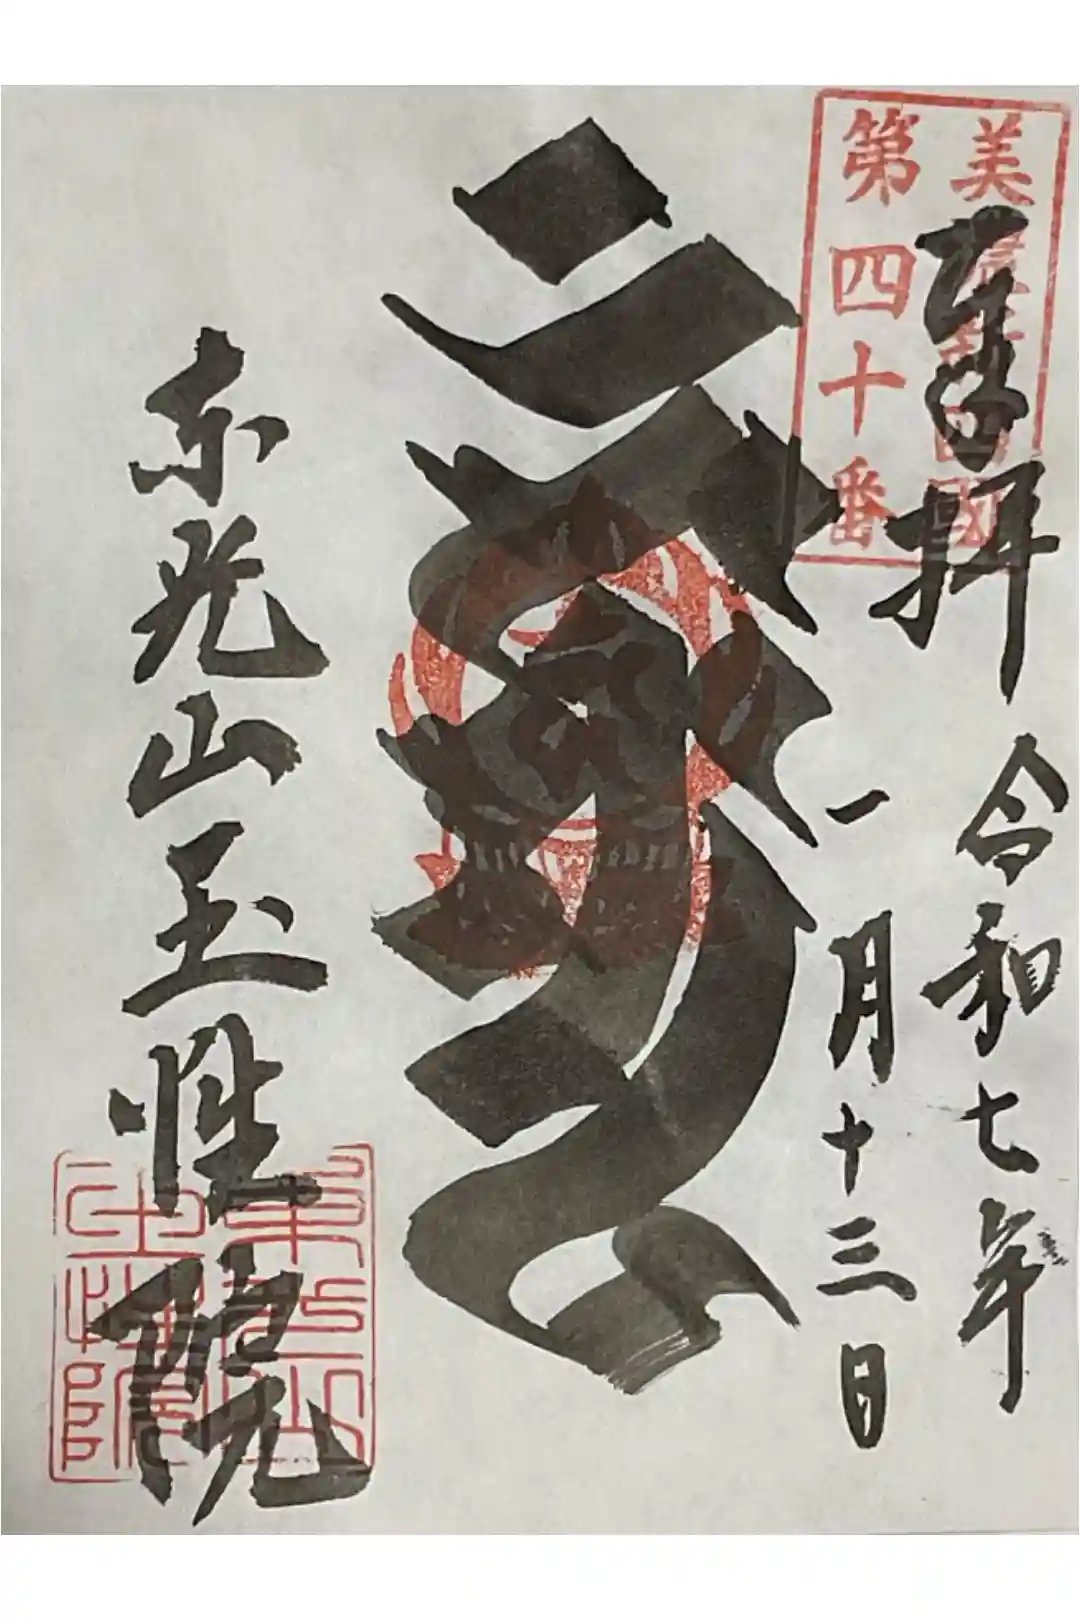 美濃新四國
第四十番
奉拝
令和七年
一月十三日
東光山玉性院
東光山
玉性院